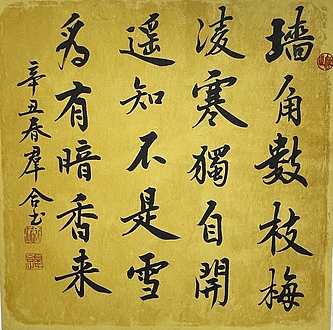 墙角数枝梅
凌寒獨自開
遥知不是雪
為有暗香来
辛丑春群合书